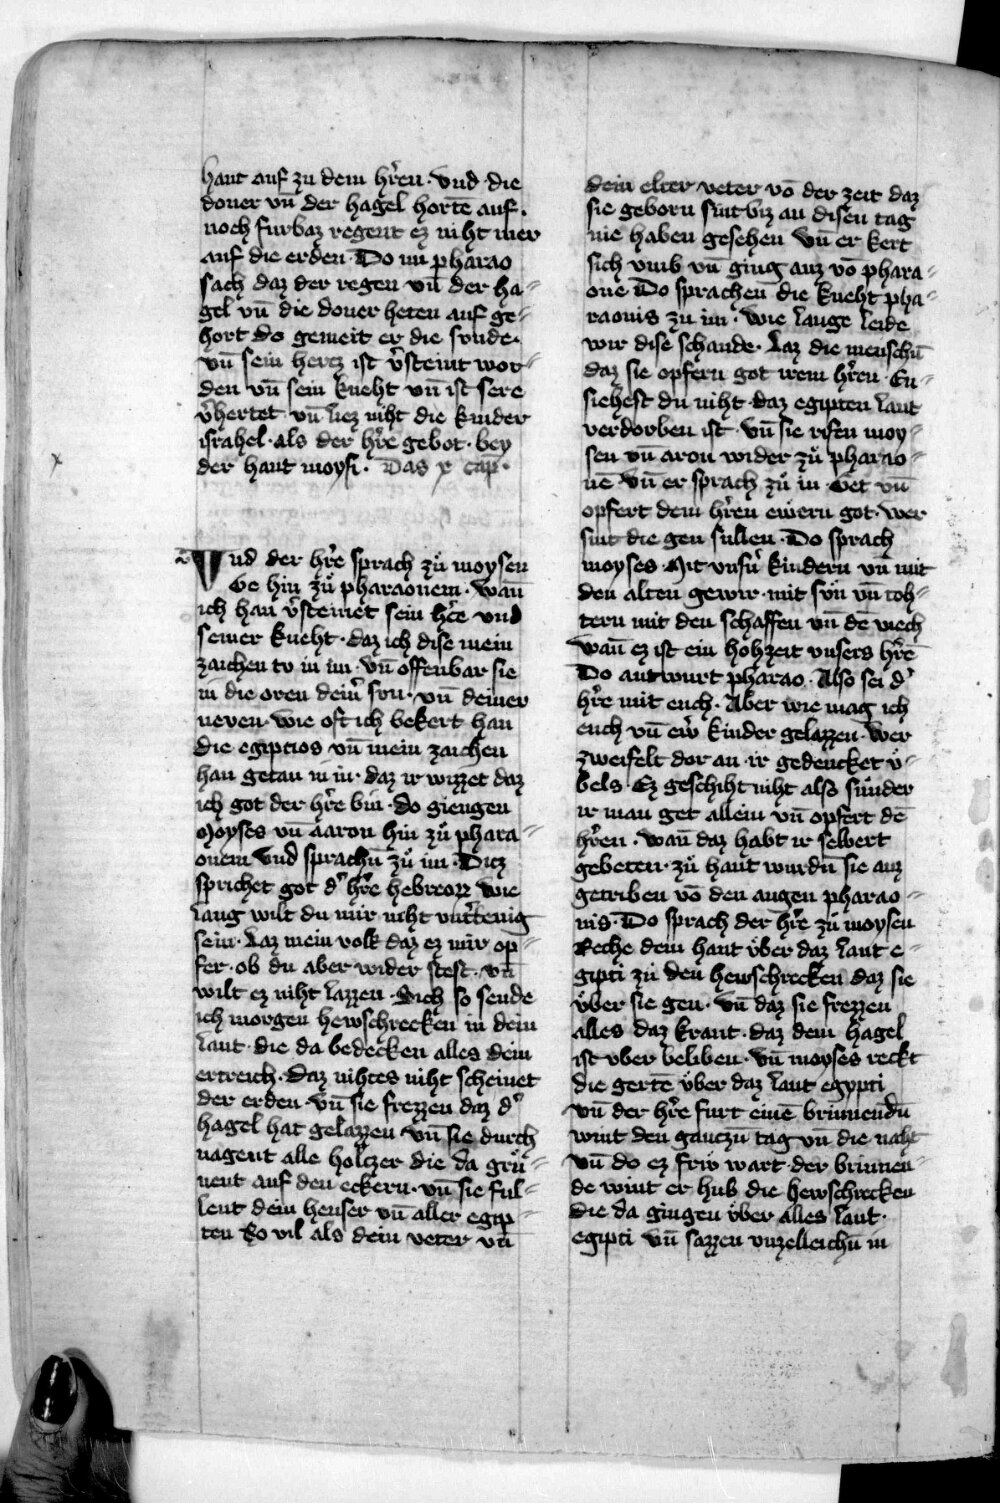 hant auf zu dem hr̄en · vnd die
doner vn̄ der hagel hortē auf ·
noch furbaz regent ez niht mer
auf die erden · Do nu pharao
sach daz der regen vn̄ der ha⸗
gel vn̄ die doner heten auf ge⸗
hort do gemeit er die sunde ·
vn̄ sein hertz ist v̓steint wor⸗
den vn̄ sein kneht vn̄ ist sere
v̓hertet vn̄ liez niht die kinder
israhel · als der hr̄e gebot · bey
der hant moysi · Das x cap ·
x
Vnd der hr̄e sprach zů moysen
Ge hin zů pharaonem · Wan̄
ich han v̓steinet sein hr̄ce vnd
seiner kneht · daz ich dise mein
zaichen tv in im · vn̄ offenbar sie
in die oren dein̓ svn · vn̄ deiner
neven · wie oft ich bekert han
die egiptios vn̄ mein zaichen
han getan in in · daz ir wizzet daz
ich got der hr̄e bin · do giengen
Moyses vn̄ aaron hin zů phara⸗
onem vnd sprachn̄ zů im · Ditz
sprichet got d̓ hr̄e hebreorꝝ Wie
lang wilt du mir niht vnt̓tenig
sein · Laz mein volk daz ez mir op⸗
fer · ob du aber wider stest · vn̄
wilt ez niht lazzen · Sich so sende
ich morgen hewschrecken in dein
lant · die da bedecken alles dein
ertreich · Daz nihtes niht scheinet
der erden · vn̄ sie frezzen daz d̓
hagel hat gelazzen vn̄ sie durch
nagent alle holtzer die da grů⸗
nent auf den eckern · vn̄ sie ful⸗
lent dein heuser vn̄ aller egip⸗
ten So vil als dein veter vn̄
dein elter veter vō der zeit daz
sie geborn sint biz an disen tag
nie haben gesehen Vn̄ er kert
sich vmb vn̄ ging auz vō phara⸗
one Do sprachen die kneht pha⸗
raonis zu im · Wie lange leide
wir dise schande · Laz die menschn̄
daz sie opfern got irem hr̄en · En⸗
siehest du niht · daz egipten lant
verdorben ist · vn̄ sie rifen moy⸗
sen vn̄ aron wider zů pharao⸗
nē Vn̄ er sprach zů in · Get vn̄
opfert dem hr̄en ewern got · wer
sint die gen sullen · Do sprach
moyses · Mit vnsn̓ kindern vn̄ mit
den alten gewir · mit svn̄ vn̄ toh⸗
tern mit den schaffen vn̄ dē viech
Wan̄ ez ist ein hohzeit vnsers hr̄ē
Do antwurt pharao · Also sei d̓
hr̄e mit euch · Aber wie mag ich
euch vn̄ ew̓ kinder gelazzen · Wer
zweifelt dor an · ir gedencket v̈⸗
bels · Ez geschiht niht also sunder
ir man get allein vn̄ opfert dē
hr̄en · Wan̄ daz habt ir selbert
gebeten · zů hant wurdn̄ sie auz
getriben vō den augen pharao⸗
nis · Do sprach der hr̄e zů moysen
Reche dein hant v̈ber daz lant e⸗
gipti zu den hewschrecken daz sie
v̈ber sie gen · vn̄ daz sie frezzen
alles daz kraut · daz dem hagel
ist vber beliben · vn̄ moyses reckt
die gertē v̈ber daz lant egypti
vn̄ der hr̄e furt einē brinnendn̄
wint den gantzn̄ tag vn̄ die naht
vn̄ do ez frw̓ wart · der brinnen⸗
de wint er hub die hewschrecken
die da gingen v̈ber alles lant ·
egipti vn̄ sazzen vnzelleichn̄ in